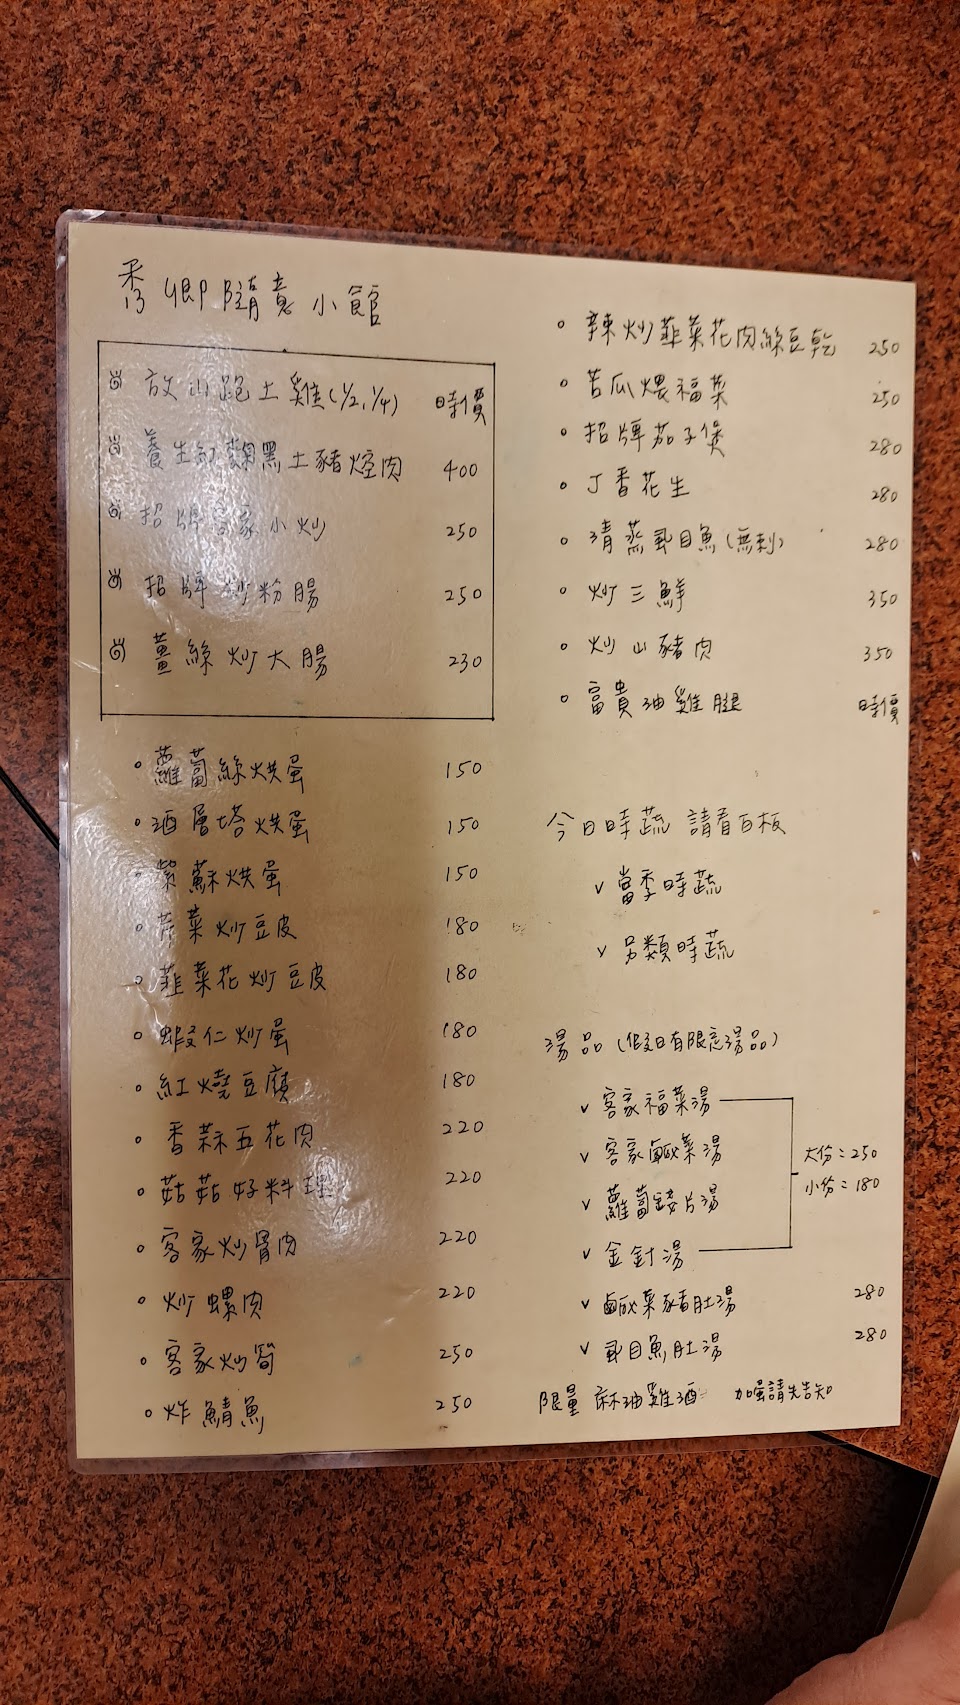 秀卿隨意小館
放山跑土雞(1/2, 1/4) 時價
養生紅麴黑土豬焢肉 400
招牌客家小炒 250
招牌炒粉腸 250
薑絲炒大腸 230
蘿蔔絲烘蛋 150
酒層塔烘蛋 150
紫蘇烘蛋 150
芹菜炒豆皮 180
韮菜花炒豆皮 180
蝦仁炒蛋 180
紅燒豆腐 180
香蒜五花肉 220
菇菇好料理 220
客家炒骨肉 220
炒螺肉 220
客家炒筍 250
炸鯖魚 250
辣炒韮菜花肉絲豆乾 250
苦瓜煨福菜 250
招牌茄子煲 280
丁香花生 280
清蒸虱目魚(無刺) 280
炒三鮮 350
炒山豬肉 350
富貴油雞腿 時價
今日時蔬 請看白板
v 當季時蔬
v 另類時蔬
湯品(假日有限定湯品)
v 客家福菜湯
v 客家鹹菜湯 大份:250
v 蘿蔔錢片湯 小份:180
v 金針湯
v 鹹菜豬肚湯 280
v 虱目魚肚湯 280
限量 麻油雞酒 加蛋請先告知